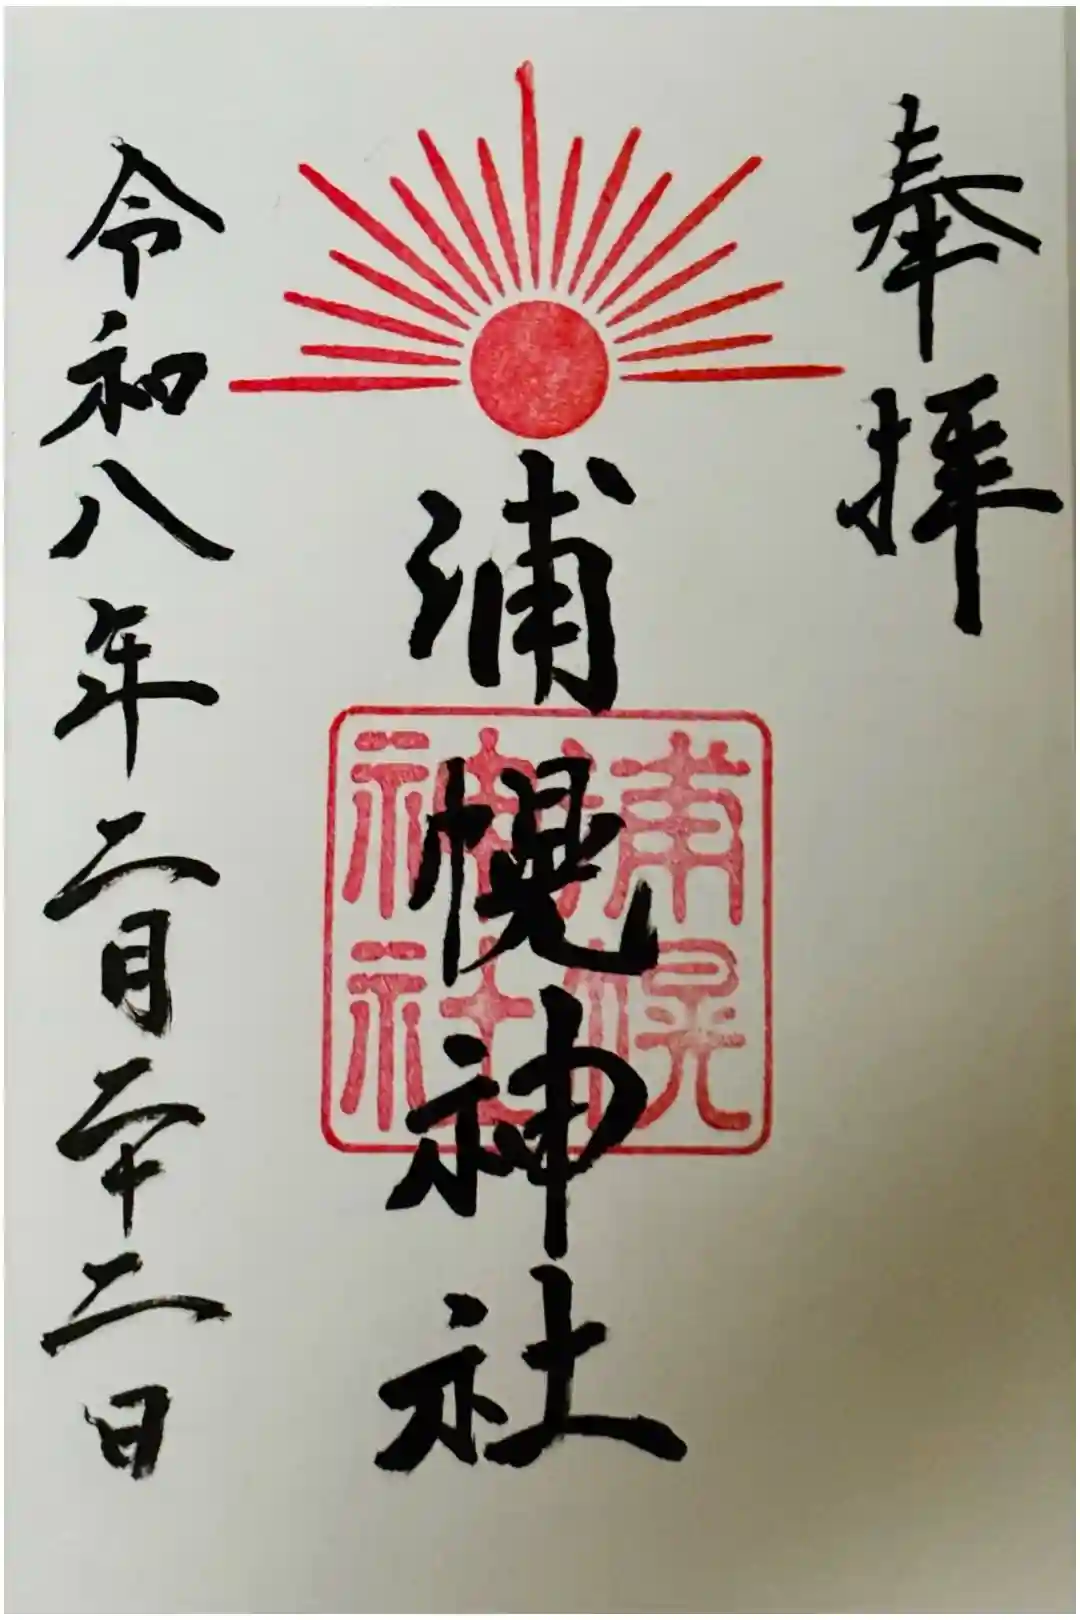 奉拝
浦幌神社
浦幌
神社
令和八年二月二十二日